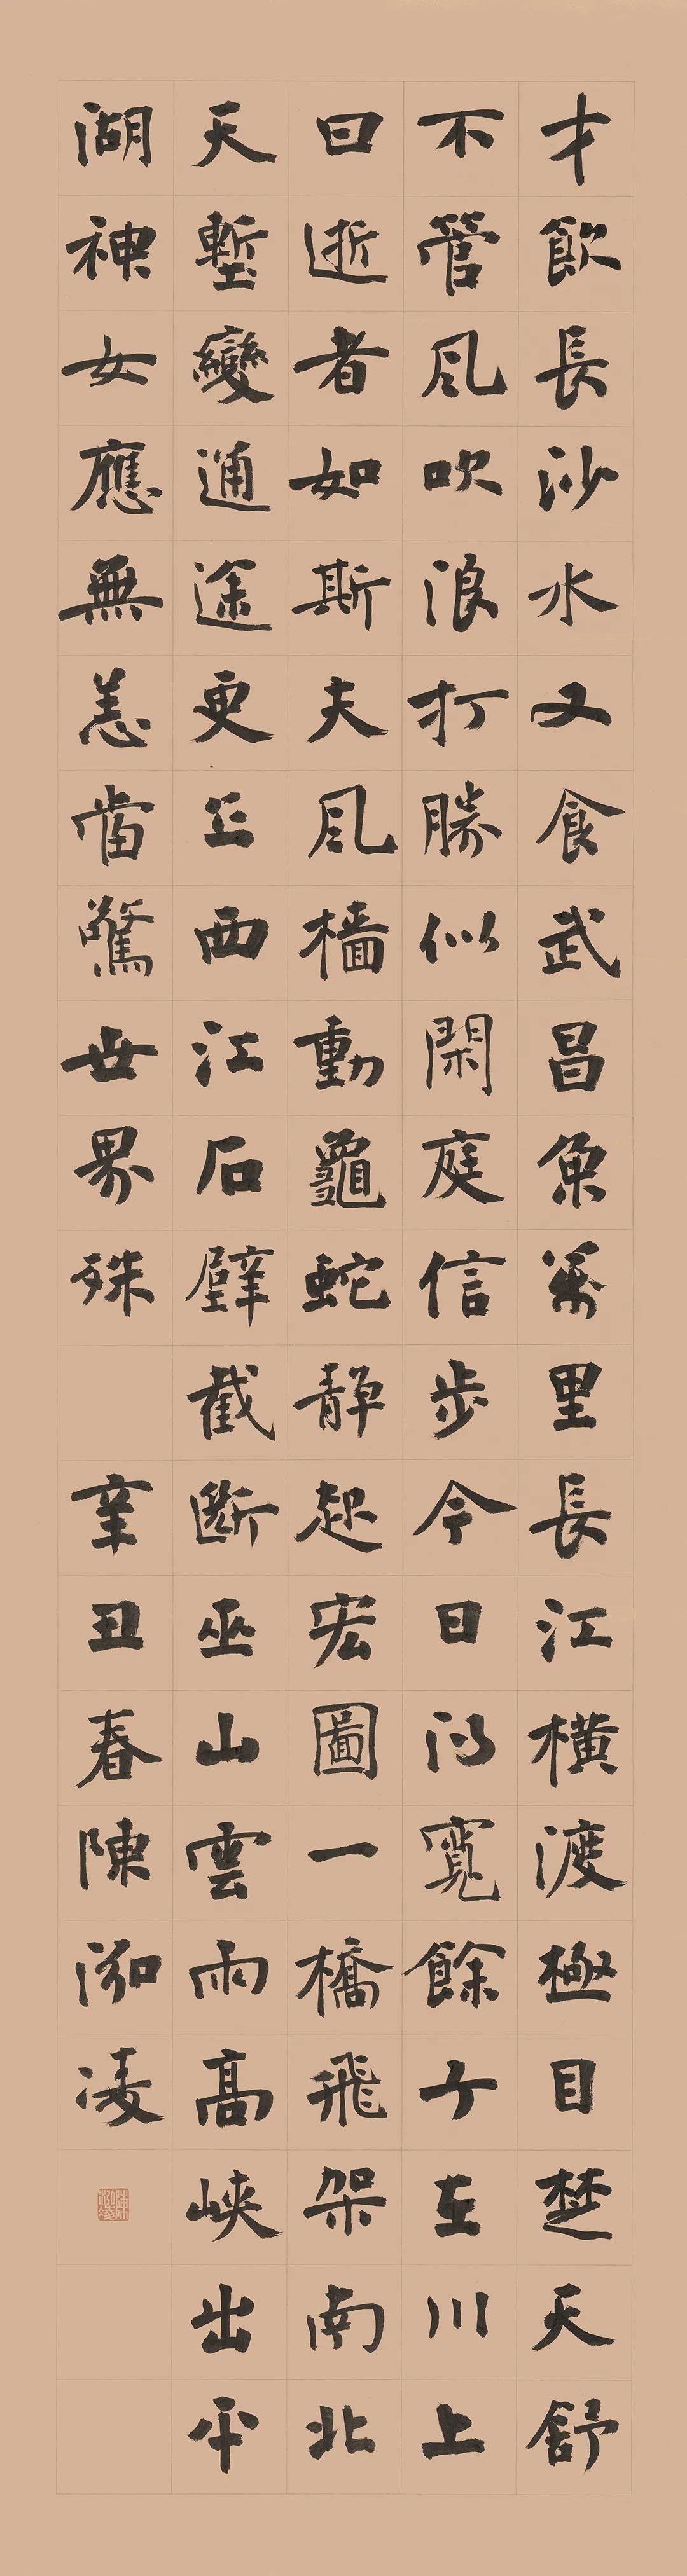 才飲長沙水又食武昌魚萬里長江橫渡極目楚天舒
不管風吹浪打勝似閑庭信步今日得寬餘子在川上
曰逝者如斯夫風檣動龜蛇靜起宏圖一橋飛架南北
天塹變通途更立西江石壁截斷巫山雲雨高峽出平
湖神女應無恙當驚世界殊 辛丑春陳泓凌